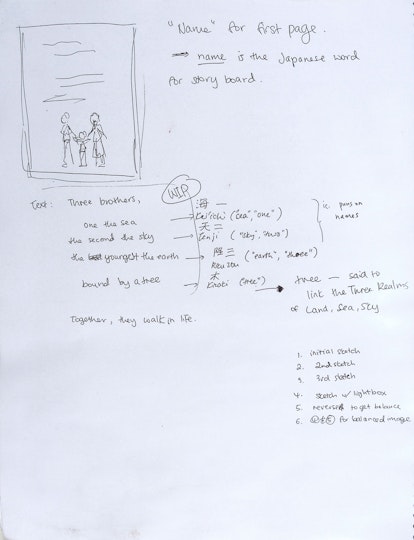 "Name" for first page.
→ name is the Japanese word
for story board.
WIP
Text: Three brothers,
海一
one the sea → Kaiichi ("Sea", "one")
ie. puns on
names
天二
the second the sky → Tenji ("sky", "two")
the youngest the earth → 陸三 ("earth", "three")
木
bound by a tree → Kinoki ("tree") → tree — said to
link the Three Realms
of Land, Sea, Sky
Together, they walk in life.
1. initial sketch
2. 2nd sketch
3. 3rd sketch
4. sketch w/ lightbox
5. reversed to get balance
6. for balanced image